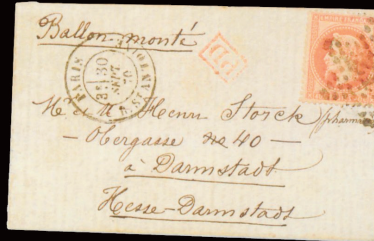 Ballon-monté
PARIS
30
SEPT.
70
PD
Mr et Me Henri Storck pharm
Obergasse no 40
à Darmstadt
Hesse-Darmstadt